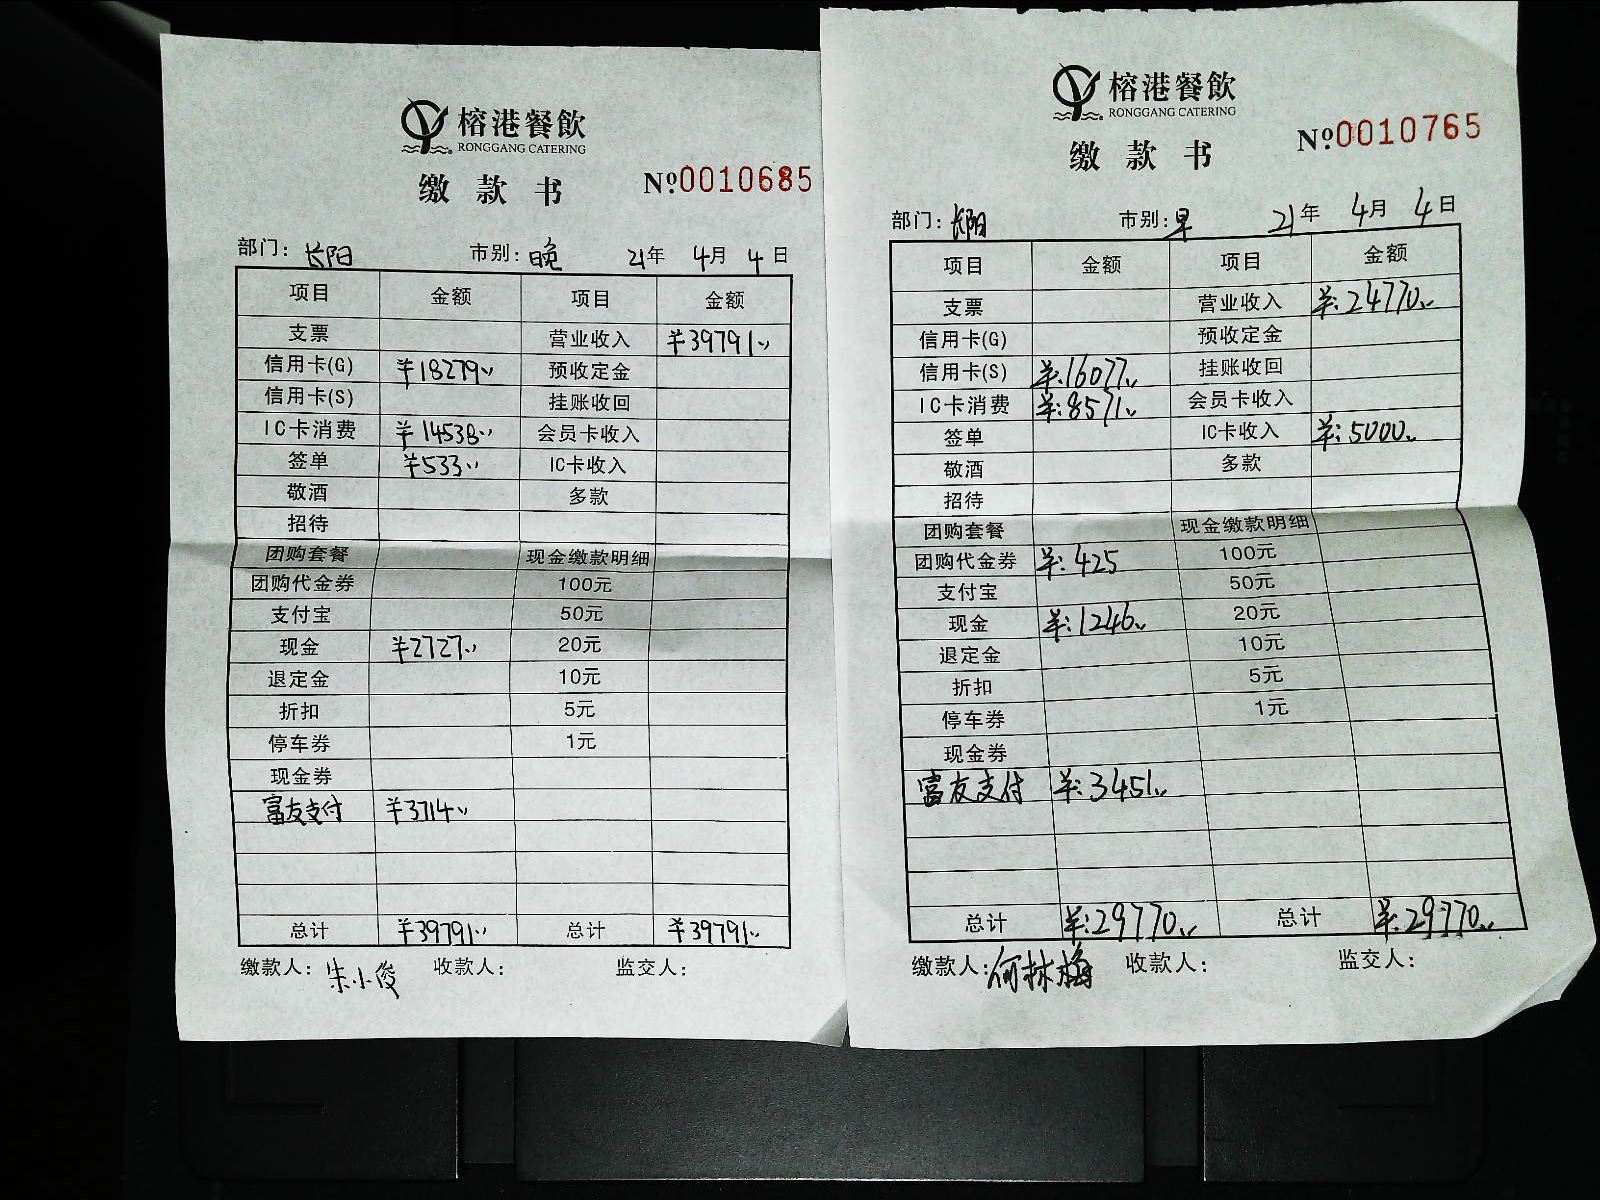 榕港餐飲
RONGGANG CATERING
缴款书
№0010685
部门：长阳 市别：晚 21年 4月 4日
项目 金额 项目 金额
支票 营业收入 ¥39791
信用卡(G) ¥18279 预收定金
信用卡(S) 挂账收回
IC卡消费 ¥14538 会员卡收入
签单 ¥533 IC卡收入
敬酒 多款
招待
团购套餐 现金缴款明细
团购代金券 100元
支付宝 50元
现金 ¥2727 20元
退定金 10元
折扣 5元
停车券 1元
现金券
富友支付 ¥3714
总计 ¥39791 总计 ¥39791
缴款人：朱小俊 收款人： 监交人：
榕港餐飲
RONGGANG CATERING
缴款书
№0010765
部门：长阳 市别：早 21年 4月 4日
项目 金额 项目 金额
支票 营业收入 ¥:24770
信用卡(G) 预收定金
信用卡(S) ¥:16077 挂账收回
IC卡消费 ¥:8571 会员卡收入
签单 IC卡收入 ¥:5000
敬酒 多款
招待
团购套餐 现金缴款明细
团购代金券 ¥:425 100元
支付宝 50元
现金 ¥:1246 20元
退定金 10元
折扣 5元
停车券 1元
现金券
富友支付 ¥:3451
总计 ¥:29770 总计 ¥:29770
缴款人：何林梅 收款人： 监交人：